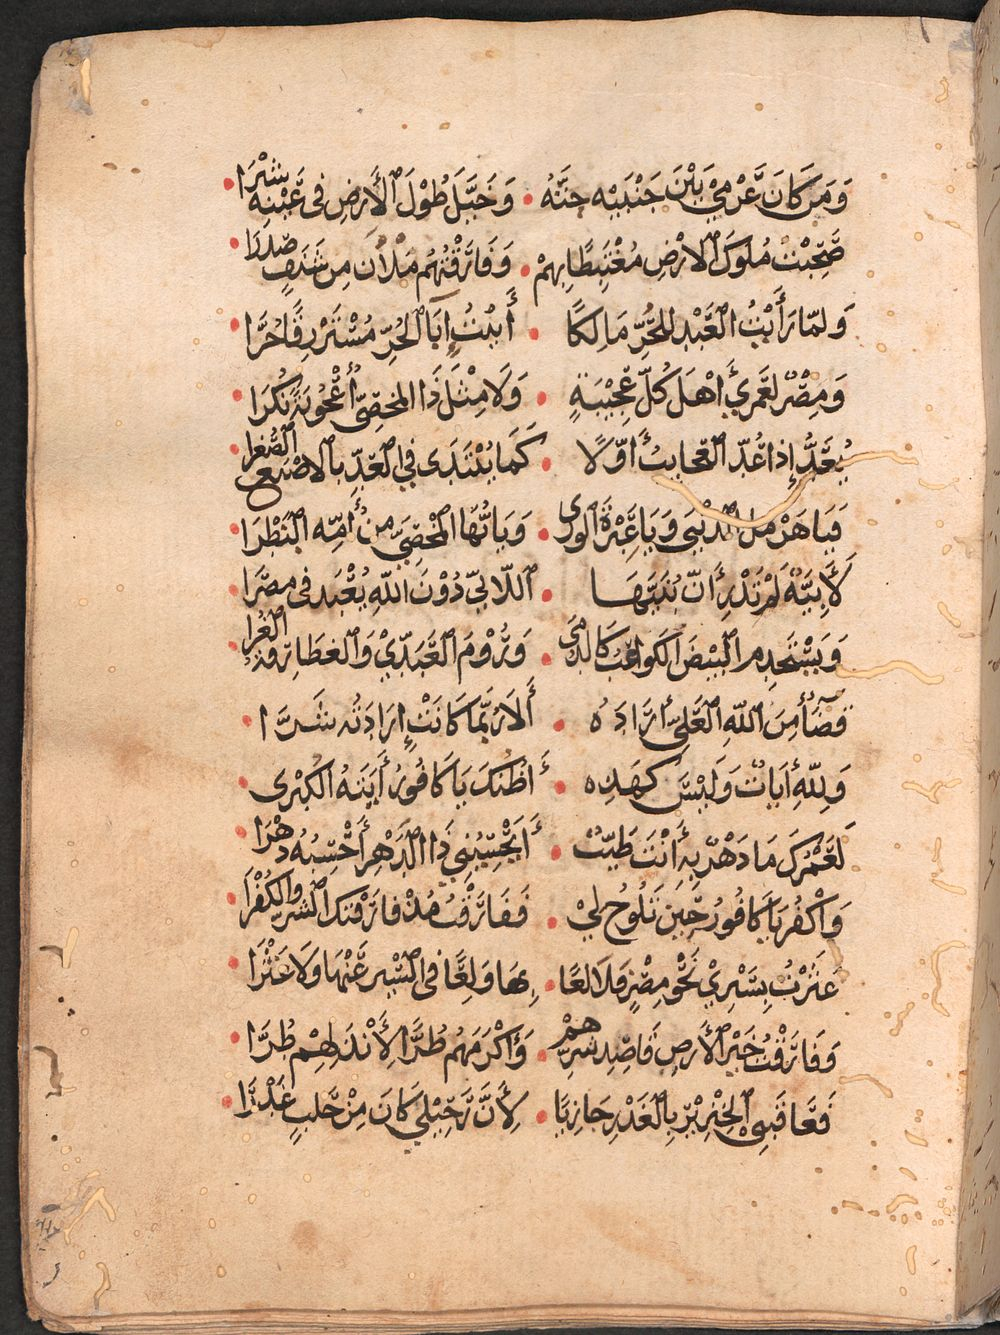 وَمَن كَانَ عَزْمِيْ بَيْنَ جَنْبَيْهِ حَثَّهُ • وَخَيَّلَ طُوْلَ الأَرضِ فى عَيْنِهِ شِبْرَا
صَحِبْتُ مُلوكَ الارْضِ مُغْتَبِطًا بِهِمْ • وَفَارَقْتُهُم مَلْآن مِن شَنَفٍ صَدرَا
وَلمّا رَأَيْتُ العَبْد للحُرِّ مَالِكًا • أَبَيْتُ إِبَآ الحُرِّ مُسْتَرزِقًا حُرَّا
وَمِصْرُ لعَمري أَهْل كلّ عَجِيْبَةٍ • وَلَا مِثْلَ ذَا المخصِيّ أُعْجُوبَة نُكرَا
يُعَدُّ إِذا عُدّ العَجايبُ أَوّلًا • كَمَا يُبْتَدَى فى العَدِّ بالاصْبَع الصُّغرا
فَيَا هَرْمَل الدنْيَى وَيَا عِبْرَة الورى • وَيَا أيّهَا المَخْصِيّ مَن أُمّه البَظْرَا
لأُبيّةٌ لَمْ تَدْرِ أَنّ بُنَيّهَا • اللّابىّ دُوْنَ اللهِ يُعْبَد فى مصْرَا
وَيَسْتَخدِم البِيْضَ الكَواعِبَ كَالدُّمَى • وَرُوْمَ العَبَدّيْ وَالغَطَارِفة الغُرا
قَضَآءٌ مِنَ اللهِ العَلىّ أَرَادَه • أَلَا رُبّمَا كَانَتْ إِرَادَتُه شَرَّا
وَلِلّهِ أَيَاتٌ وَلَيْسَ كهَذِه • أَظُنكَ يَا كَافُورُ أَيَتَهُ الكبْرى
لَعَمْرُكَ مَا دَهْرٌ بهِ أَنْتَ طَيّبٌ • أَيَحْسِبُنِي ذَا الدَهْرِ أَحْسِبُهُ دهْرَا
وَأَكْفُر يَا كَافُورُ حِيْنَ تَلُوحُ لِيْ • فَفَارَقْتُ مُذْ فارَقْتكَ الشرّ والكُفْرَا
عَثَرْتُ بِسَيْرِيْ نَحْو مِصْرٍ فَلَا لعًا • بِهَا وَلعًا فى السَّيْر عَنْهَا وَلَا عَثْرَا
وَفَارَقْتُ خَيْرَ الأَرضِ قَاصِد شرِّهمْ • وَأكْرَمهُم طُرًّا لِأَنْذَلِهِم طُرَّا
فَعَاقَبنِى الخِنْزِيْر بِالغَدْرِ جَازِيًا • لِأَنَّ رَحِيْلِي كَانَ مِنْ حَلبٍ غَدْرَا